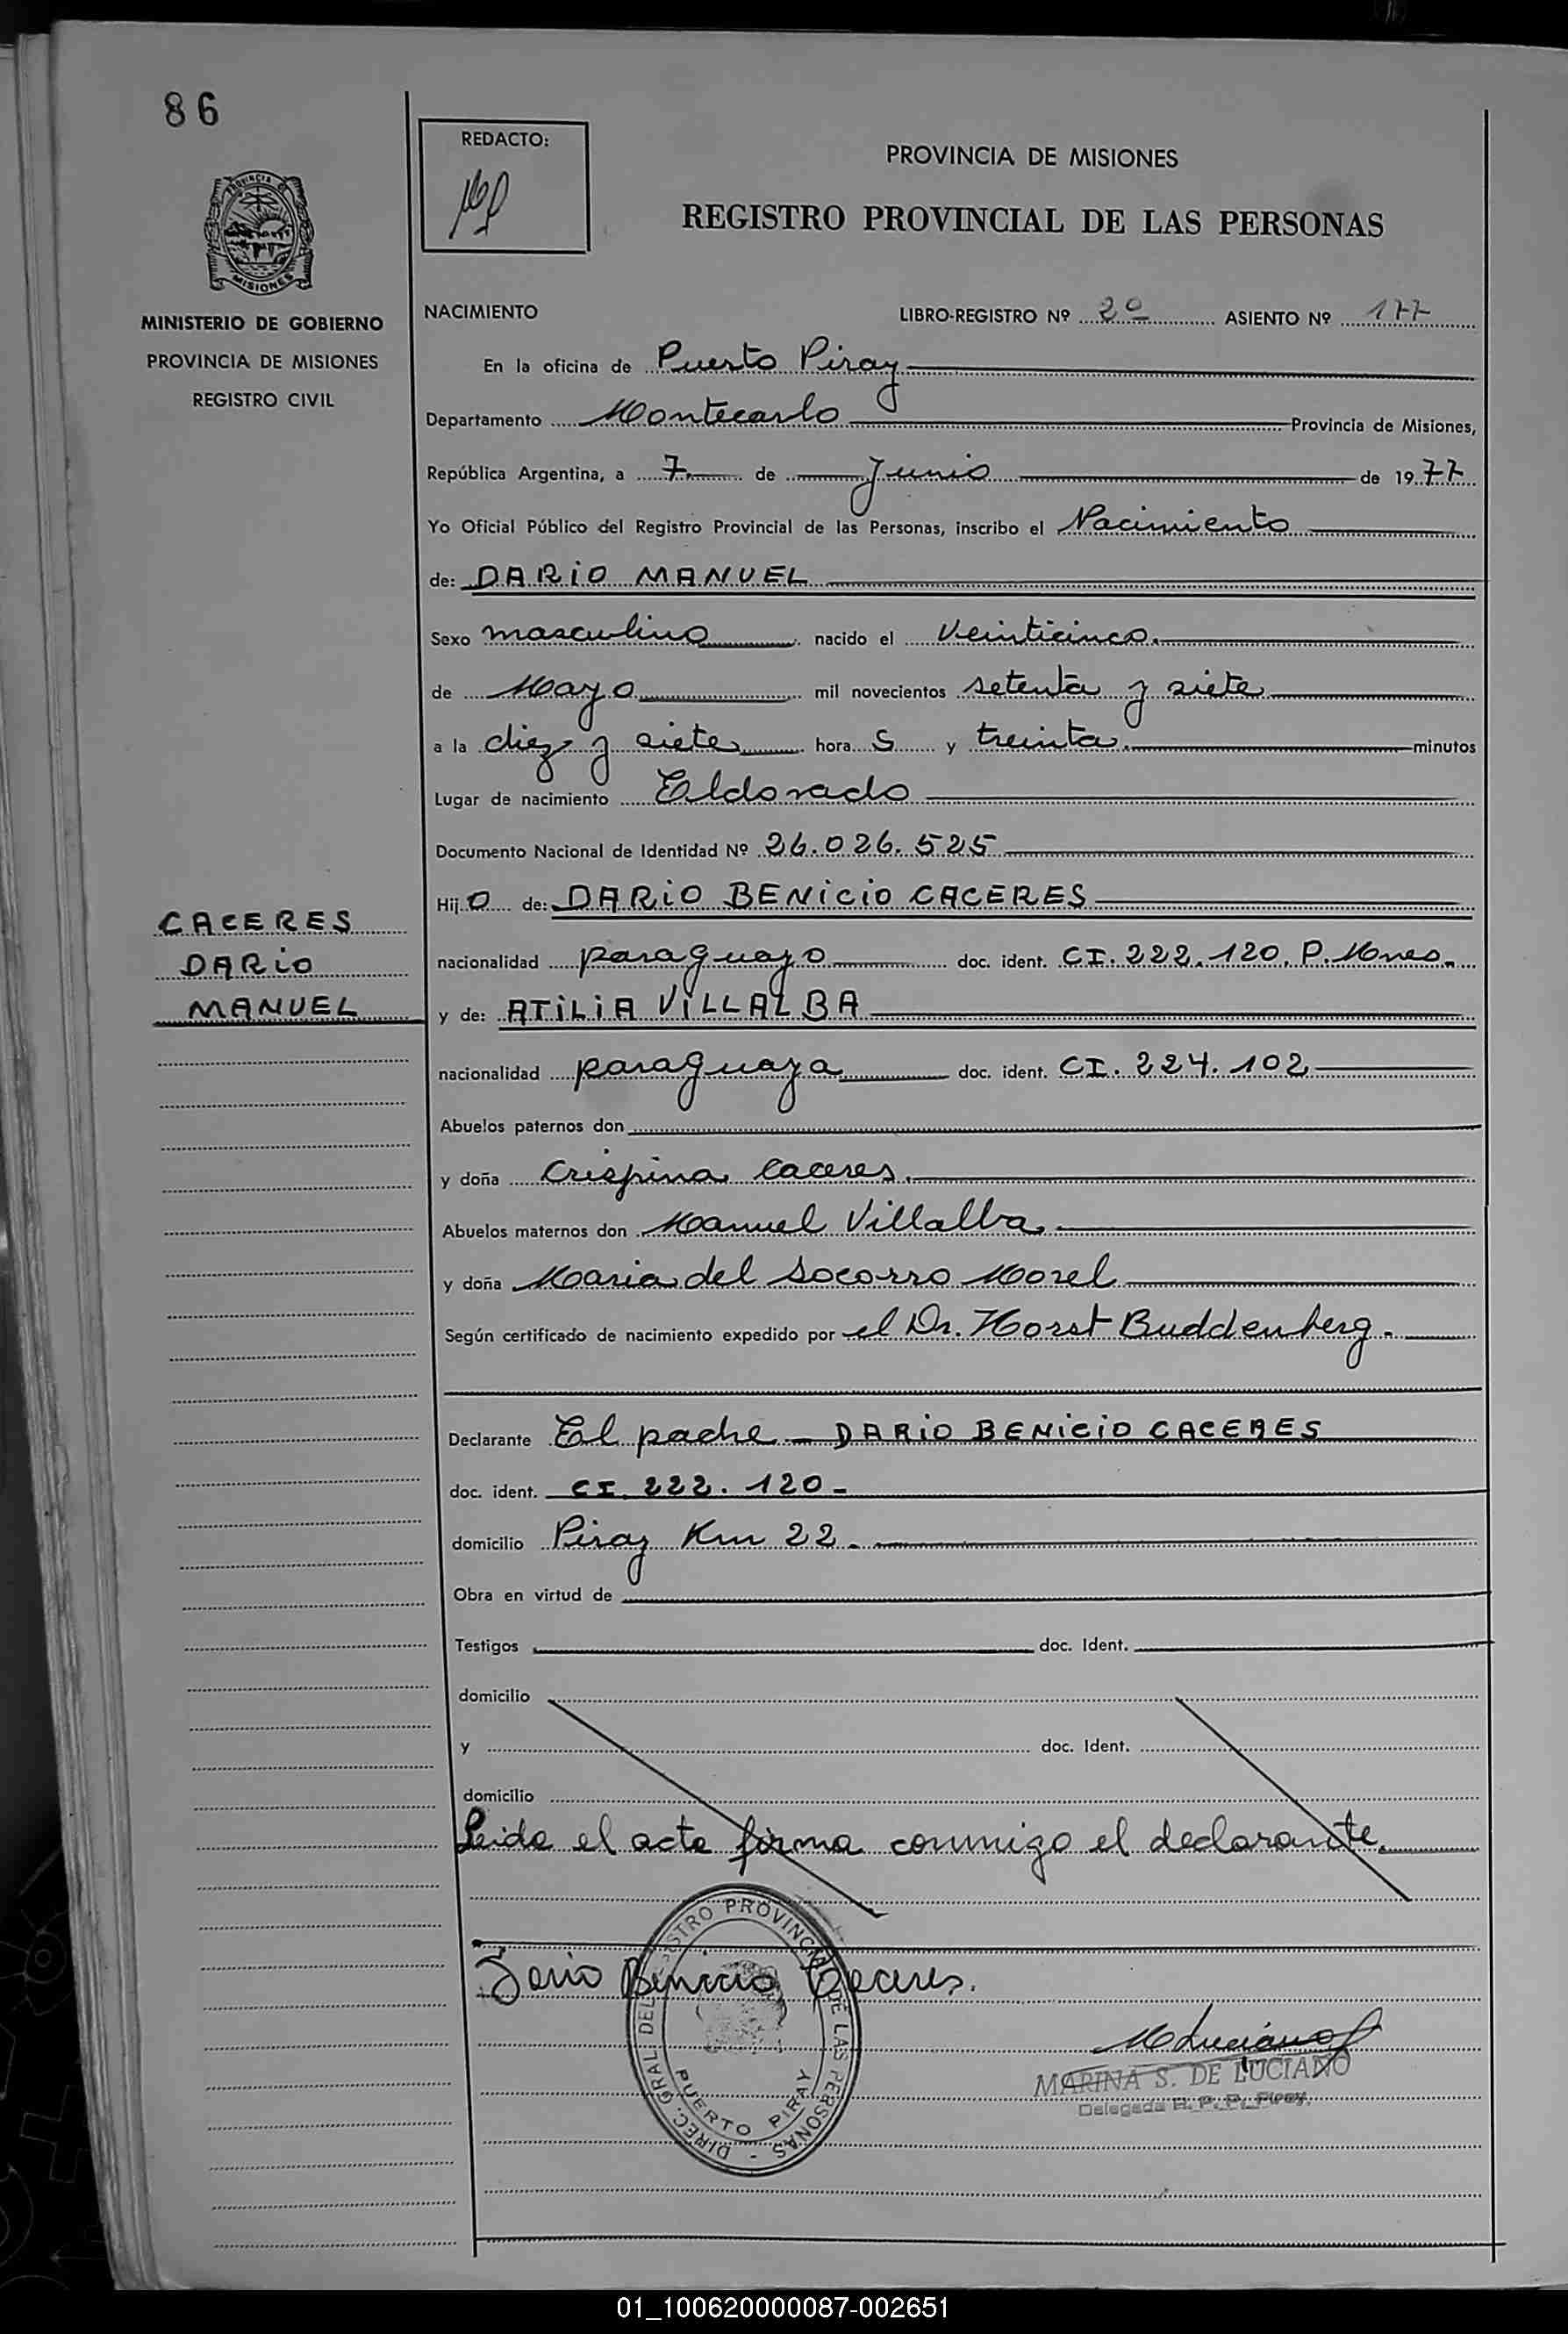 86
REDACTO:
PROVINCIA DE MISIONES
REGISTRO PROVINCIAL DE LAS PERSONAS
PROVINCIA DE
MISIONES
MINISTERIO DE GOBIERNO
PROVINCIA DE MISIONES
REGISTRO CIVIL
NACIMIENTO LIBRO-REGISTRO Nº 2º ASIENTO Nº 177
En la oficina de Puerto Piray
Departamento Montecarlo Provincia de Misiones,
República Argentina, a 7 de Junio de 1977
Yo Oficial Público del Registro Provincial de las Personas, inscribo el Nacimiento
de: DARIO MANUEL
Sexo masculino nacido el veinticinco.
de Mayo mil novecientos setenta y siete
a la diez y siete hora S y treinta. minutos
Lugar de nacimiento Eldorado
Documento Nacional de Identidad Nº 26.026.525
Hijo de: DARIO BENICIO CACERES
CACERES
DARIO
MANUEL
nacionalidad paraguayo doc. ident. CI. 222.120. P. Mnes.
y de: ATILIA VILLALBA
nacionalidad paraguaya doc. ident. CI. 224.102
Abuelos paternos don
y doña Crispina Caceres.
Abuelos maternos don Manuel Villalba.
y doña Maria del Socorro Morel
Según certificado de nacimiento expedido por el Dr. Horst Buddenberg.
Declarante El padre - DARIO BENICIO CACERES
doc. ident. CI. 222.120-
domicilio Piray Km 22.
Obra en virtud de
Testigos doc. Ident.
domicilio
y doc. Ident.
domicilio
Leida el acta firma conmigo el declarante.
Dario Benicio Caceres.
DIREC. GRAL DEL REGISTRO PROVINCIAL DE LAS PERSONAS -
PUERTO PIRAY
MLuciano
MARINA S. DE LUCIANO
Delegada R. P. P. Piray.
01_100620000087-002651